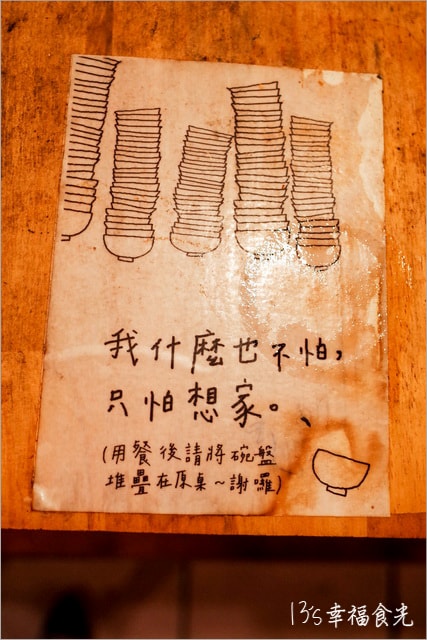 我什麼也不怕，
只怕想家。、
(用餐後請將碗盤
堆疊在原桌～謝囉)
13's幸福食光